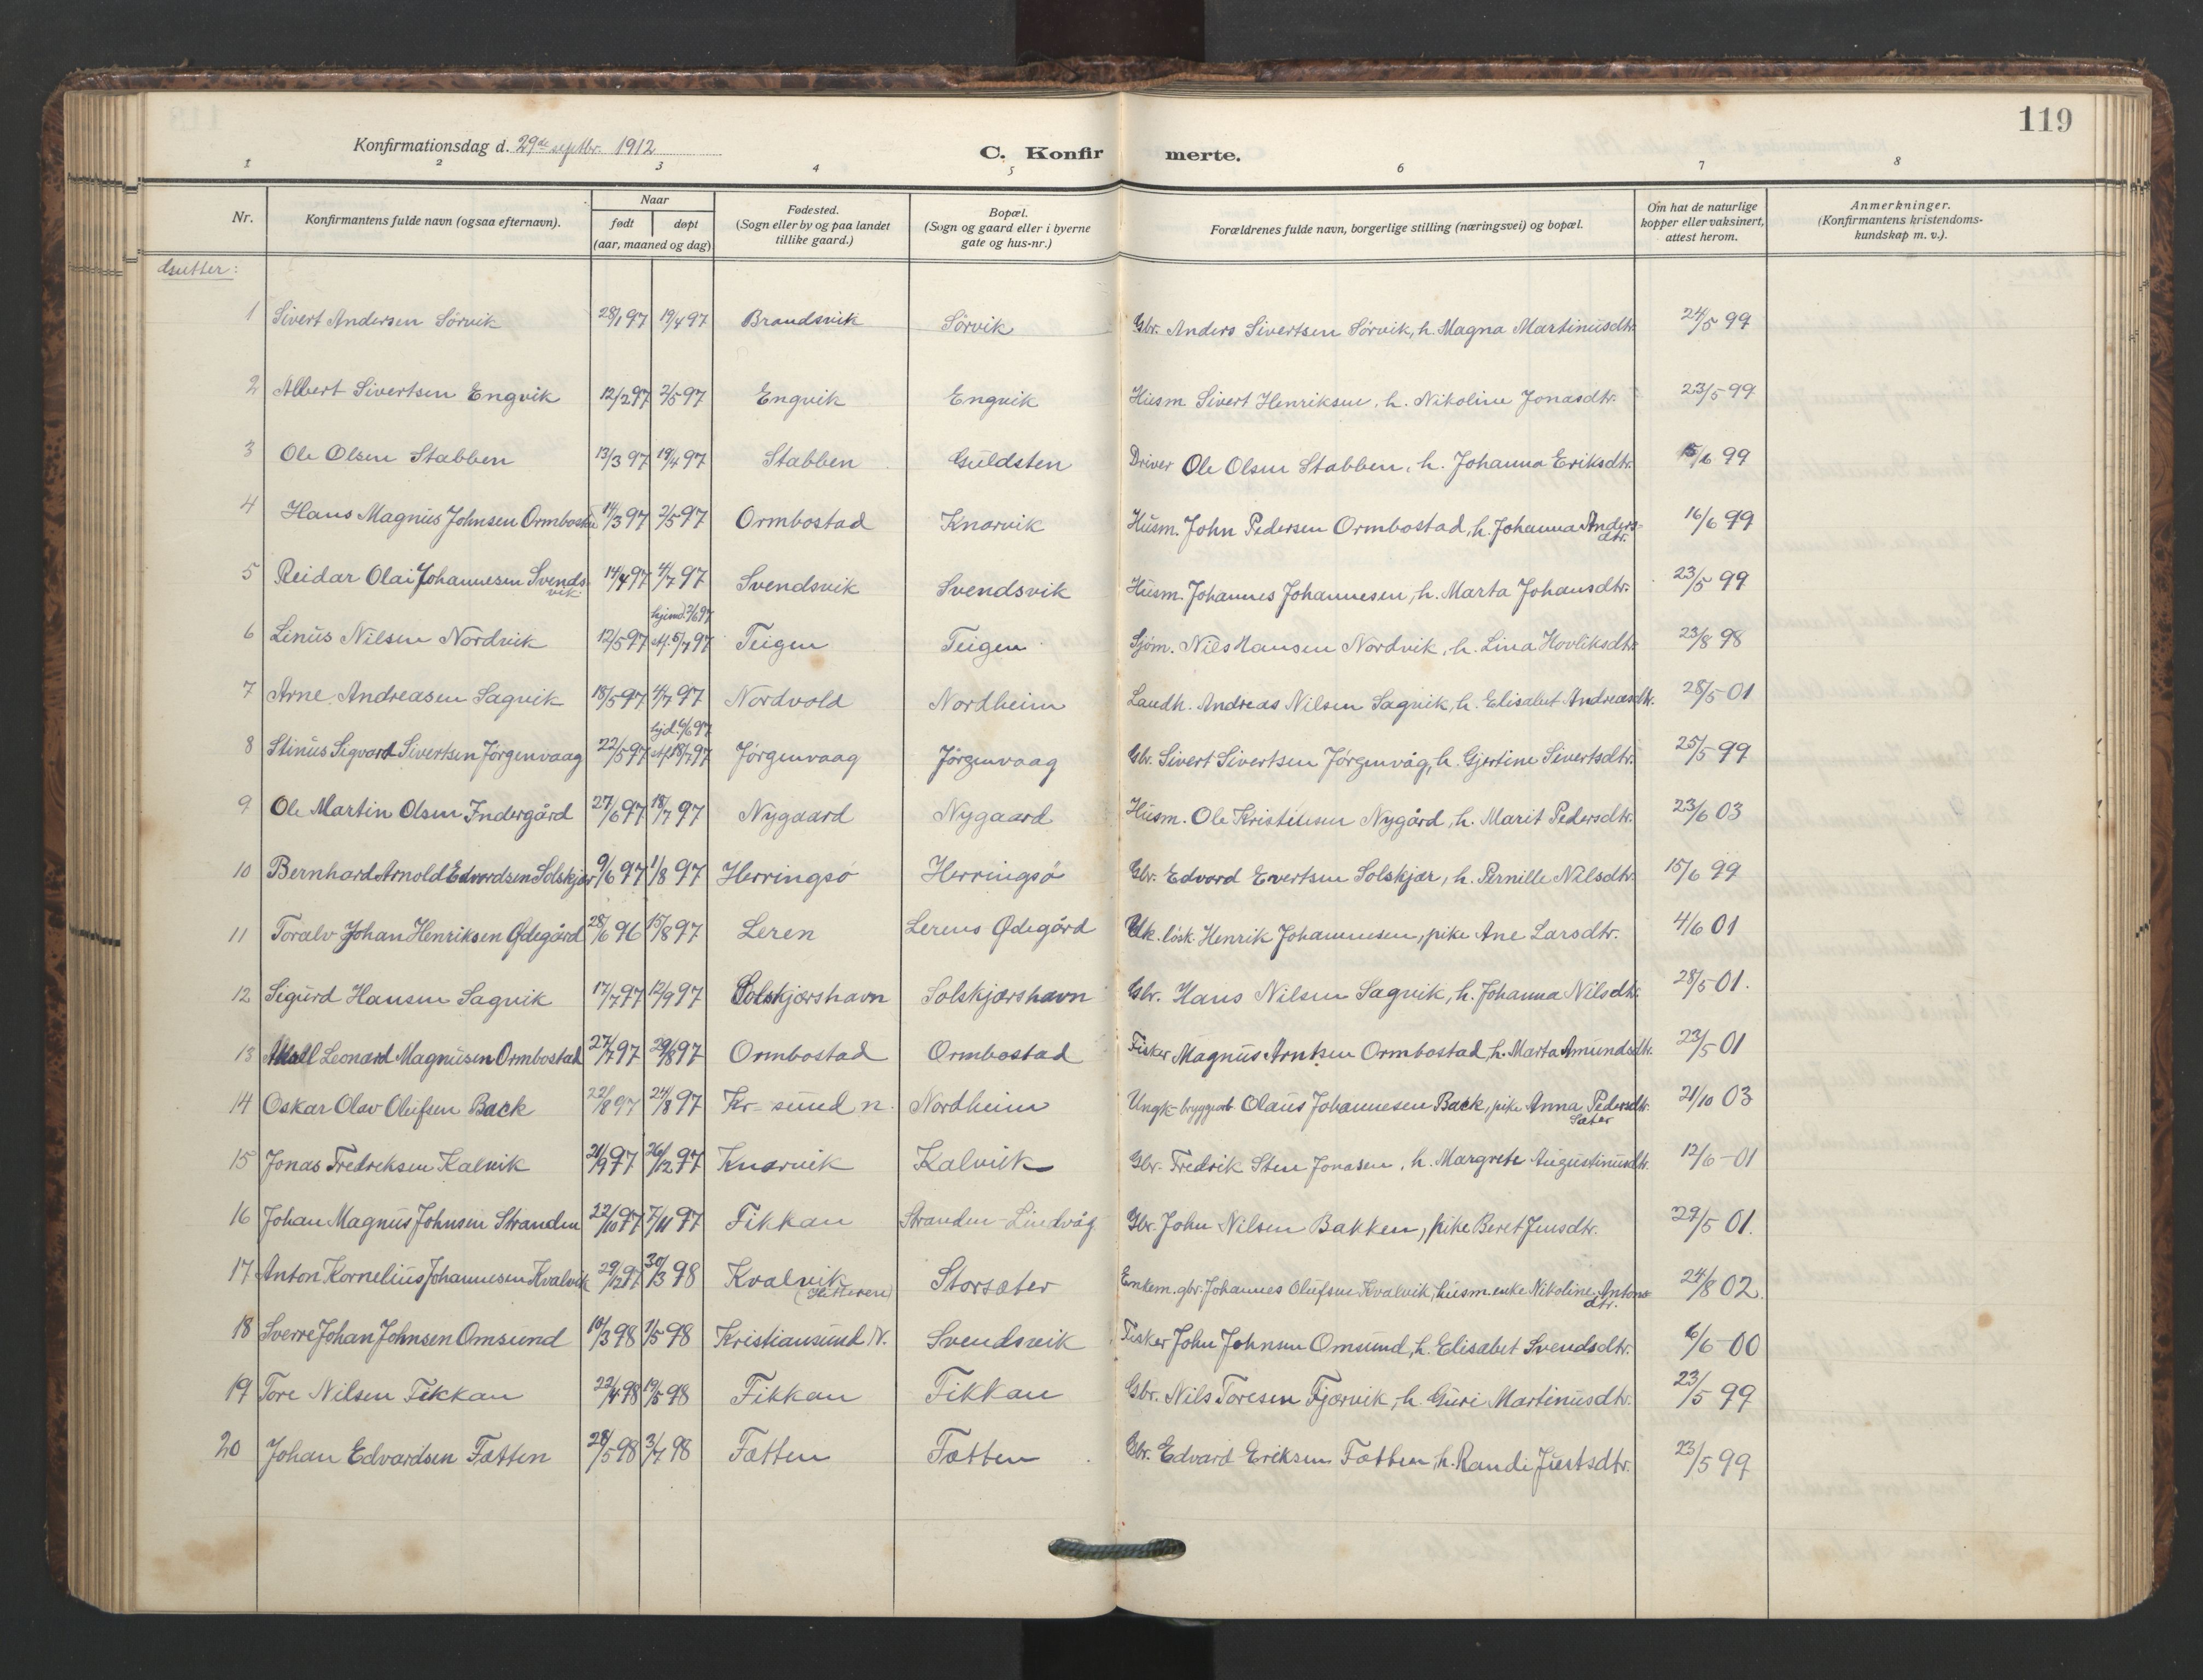 119
Konfirmationsdag d. 29de septbr. 1912
C. Konfirmerte.
1 2 3 4 5 6 7 8
Nr. Konfirmantens fulde navn (ogsaa efternavn). Naar født døpt (aar, maaned og dag) Fødested. (Sogn eller by og paa landet tillike gaard.) Bopæl. (Sogn og gaard eller i byerne gate og hus-nr.) Forældrenes fulde navn, borgerlige stilling (næringsvei) og bopæl. Om hat de naturlige kopper eller vaksinert, attest herom. Anmerkninger. (Konfirmantens kristendoms-kundskap m. v.).
Gutter:
1 Sivert Andersen Sörvik 28/1 97 19/4 97 Brandsvik Sörvik Gbr. Anders Sivertsen Sörvik, h. Magna Martinusdtr. 24/5 99
2 Albert Sivertsen Engvik 12/2 97 2/5 97 Engvik Engvik Husm Sivert Henriksen, h. Nikoline Jonasdtr. 23/5 99
3 Ole Olsen Stabben 13/3 97 19/4 97 Stabben Guldsten Driver Ole Olsen Stabben, h. Johanna Eriksdtr. 15/6 99
4 Hans Magnus Johnsen Ormbostad 14/3 97 2/5 97 Ormbostad Knarvik Husm. John Pedersen Ormbostad, h. Johanna Andersdtr. 16/6 99
5 Reidar Olai Johannesen Svendsvik 14/4 97 4/7 97 Svendsvik Svendsvik Husm. Johannes Johannesen, h. Marta Johansdtr. 23/5 99
6 Linus Nilsen Nordvik 12/5 97 hjemd. 2/6 97 st. 5/7 97 Teigen Teigen Sjöm. Nils Hansen Nordvik, h. Lina Hovliksdtr. 23/8 98
7 Arne Andreasen Sagvik 18/5 97 4/7 97 Nordvold Nordheim Landh. Andreas Nilsen Sagvik, h. Elisabet Andreasdtr. 28/5 01
8 Stinus Sigvard Sivertsen Jörgenvaag 22/5 97 hjd. 6/6 97 st. 18/7 97 Jörgenvaag Jörgenvaag Gbr. Sivert Sivertsen Jörgenvåg, h. Gjertine Sivertsdtr. 25/5 99
9 Ole Martin Olsen Indergård 27/6 97 18/7 97 Nygaard Nygaard Husm. Ole Kristensen Nygård, h. Marit Pedersdtr. 23/6 03
10 Bernhard Arnold Edvardsen Solskjær 9/6 97 1/8 97 Herringsö Herringsö Gbr. Edvard Evertsen Solskjær, h. Pernille Nilsdtr. 15/6 99
11 Toralv Johan Henriksen Ødegård 28/6 96 15/8 97 Leren Lerens Ødegård Uk. lösk. Henrik Johannesen, pike Ane Larsdtr. 4/6 01
12 Sigurd Hansen Sagvik 17/7 97 12/9 97 Solskjærshavn Solskjærshavn Gbr. Hans Nilsen Sagvik, h. Johanna Nilsdtr. 28/5 01.
13 Leonard Magnusen Ormbostad 27/7 97 29/8 97 Ormbostad Ormbostad Fisker Magnus Arntsen Ormbostad, h. Marta Amundsdtr. 23/5 01
14 Oskar Olav Olufsen Back 22/8 97 24/8 97 Kr-sund n. Nordheim Ungk-bryggearb Olaus Johannesen Back, pike Anna Pedersdtr. Sæter 21/10 03
15 Jonas Fredriksen Kalvik 21/9 97 26/12 97 Knarvik Kalvik Gbr. Fredrik Sten Jonasen, h. Margrete Augustinusdtr. 12/6-01
16 Johan Magnus Johnsen Stranden 22/10 97 7/11 97 Fikkan Stranden-Lindvåg Gbr. John Nilsen Bakken, pike Beret Jensdtr. 29/5 01.
17 Anton Kornelius Johannesen Kvalvik 29/12 97 30/3 98 Kvalvik (Hitteren) Storsæter Enkem. gbr. Johannes Olufsen Kvalvik, husm.enke Nikoline Antonsdtr. 24/8 02.
18 Sverre Johan Johnsen Omsund 10/3 98 1/5 98 Kristiansund N. Svendsvik Fisker John Johnsen Omsund, h. Elisabet Svendsdtr. 6/6-00
19 Tore Nilsen Fikkan 22/4 98 19/5 98 Fikkan Fikkan Gbr. Nils Toresen Fjærvik, h. Guri Martinusdtr. 23/5 99
20 Johan Edvardsen Fætten 28/5 98 3/7 98 Fætten Fætten Gbr. Edvard Eriksen Fætten, h. Randi Juertsdtr. 23/5 99